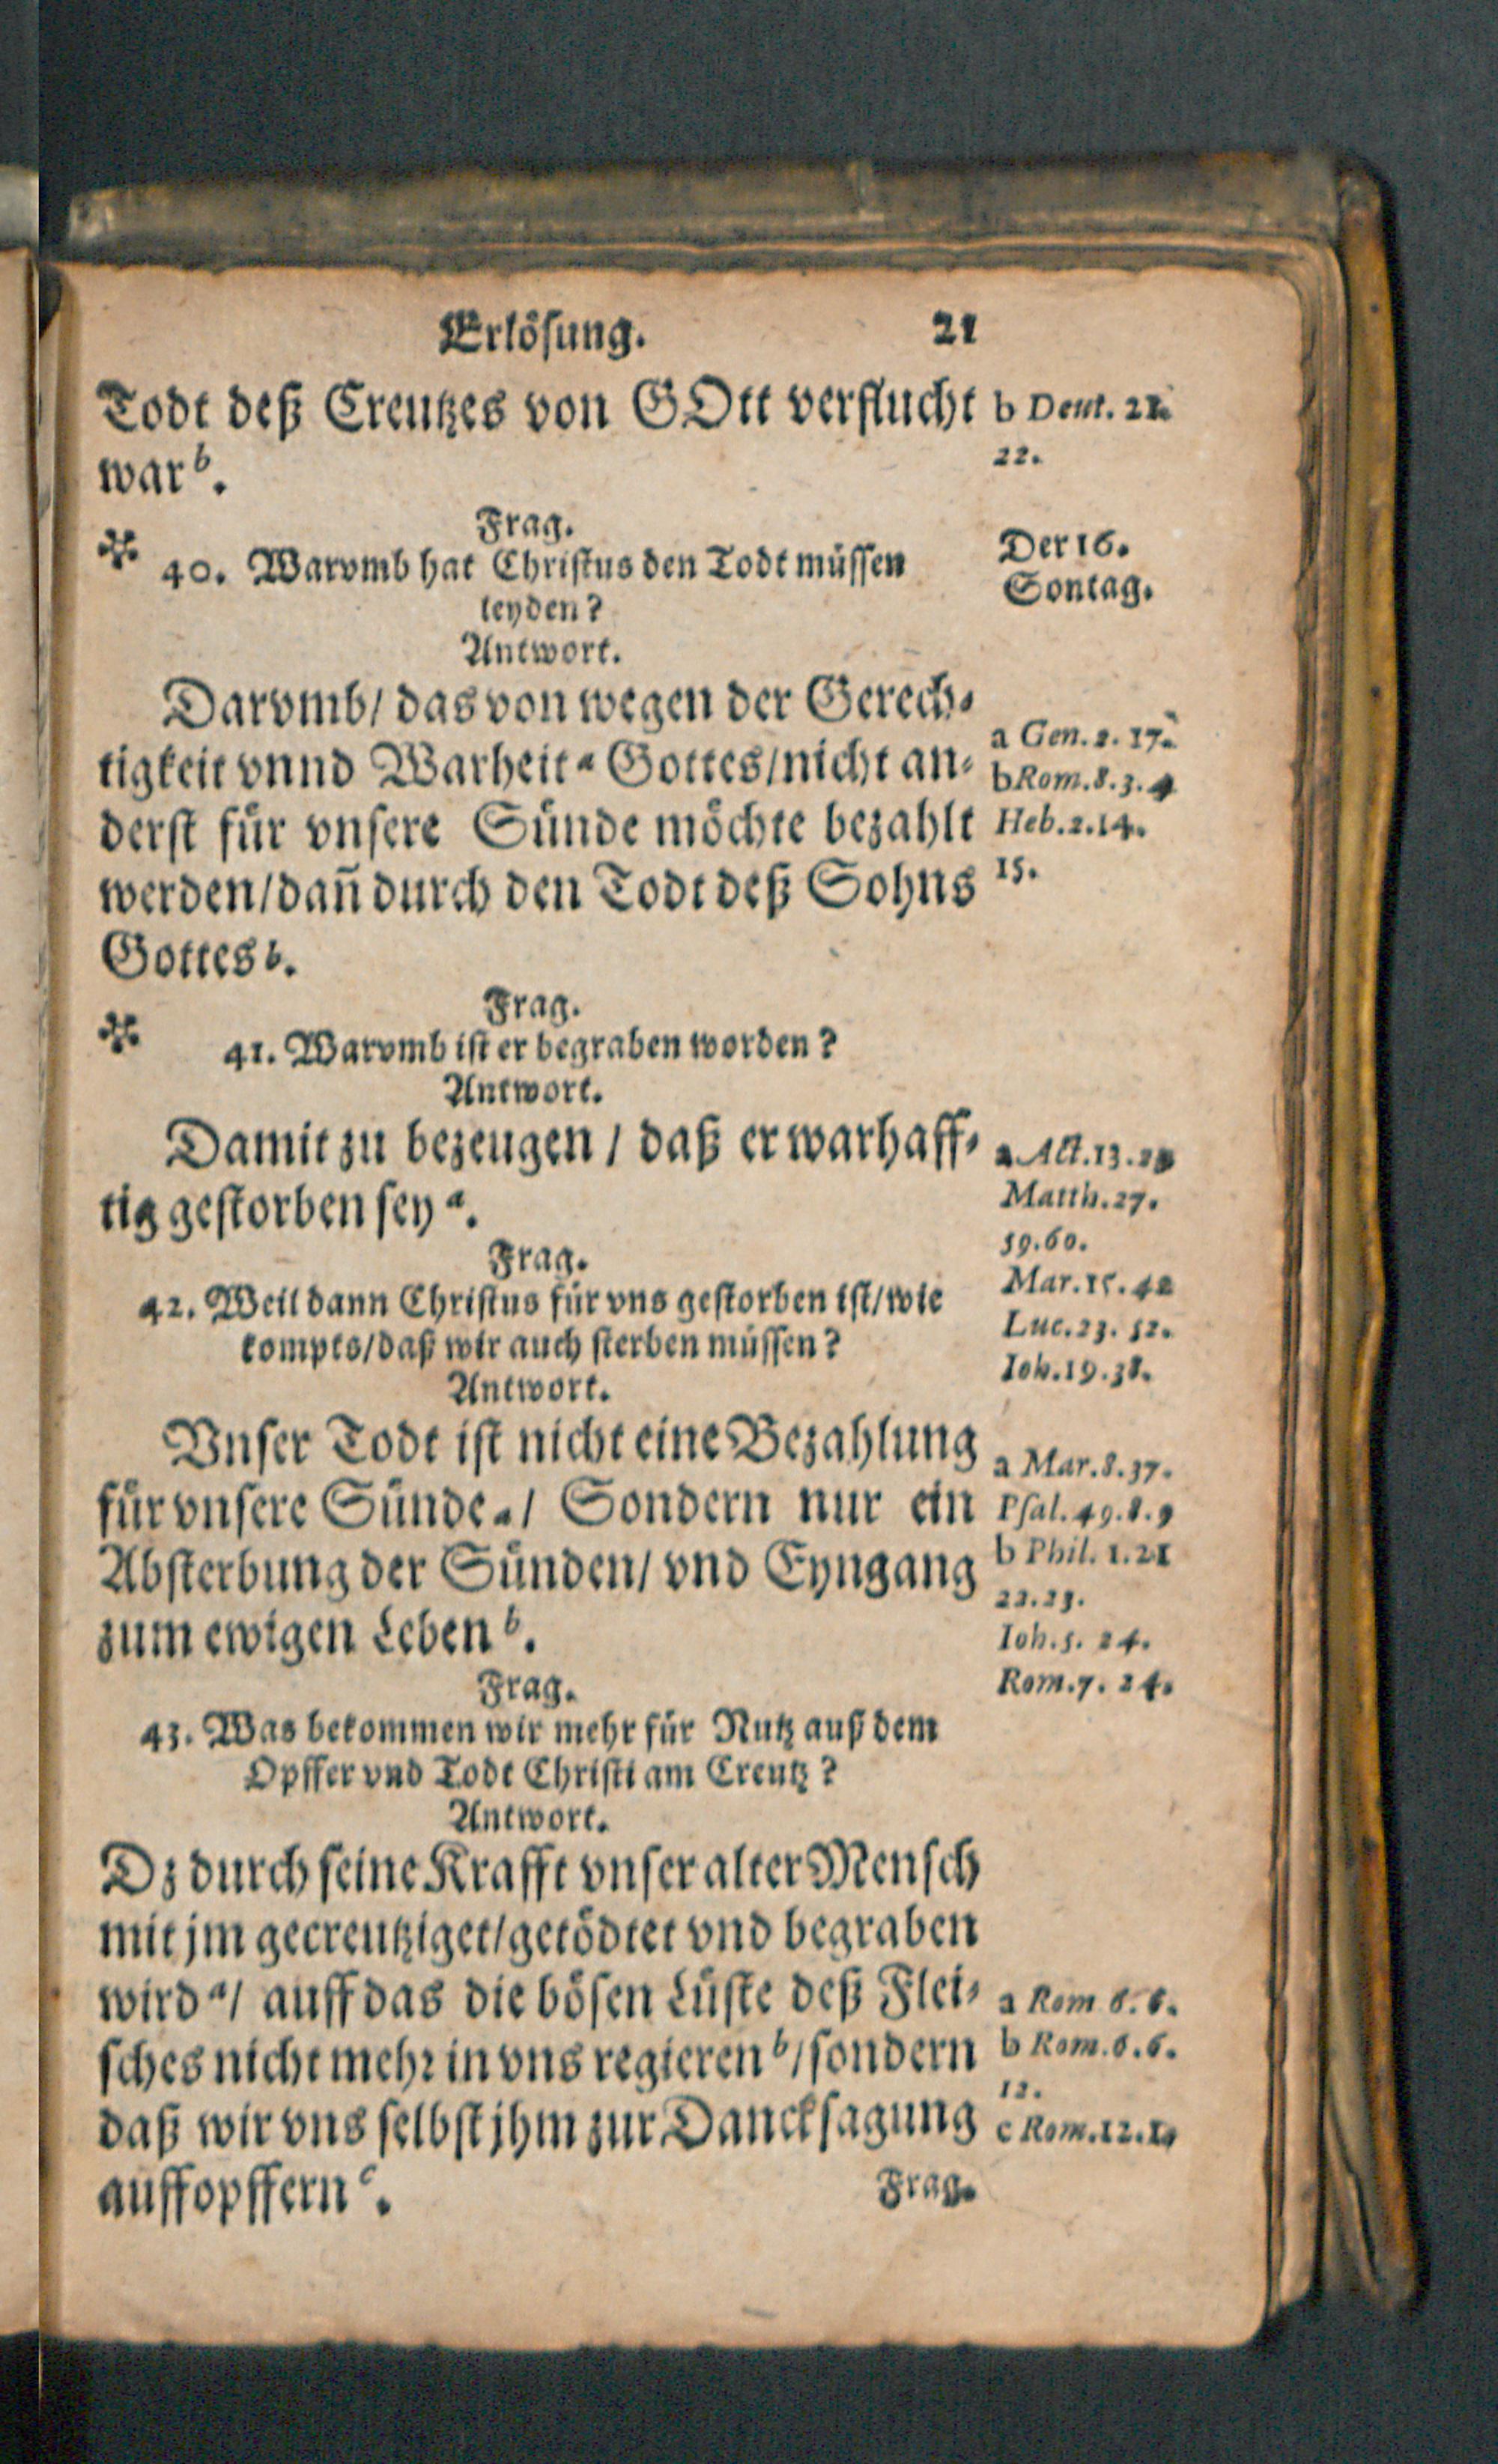 Erlösung. 21
Todt deß Creutzes von GOtt verflucht
war b.
b Deut. 21.
22.
Frag.
40. Warvmb hat Christus den Todt müssen
leyden?
Der 16.
Sontag.
Antwort.
Darvmb/ das von wegen der Gerech⸗
tigkeit vnnd Warheit a Gottes/nicht an⸗
derst für vnsere Sünde möchte bezahlt
werden/dañ durch den Todt deß Sohns
Gottes b.
a Gen. 2. 17.
b Rom. 8. 3. 4
Heb. 2. 14.
15.
Frag.
41. Warvmb ist er begraben worden?
Antwort.
Damit zu bezeugen / daß er warhaff⸗
tig gestorben sey a.
a Act. 13.
Matth. 27.
59. 60.
Mar. 15. 42
Luc. 23. 52.
Ioh. 19. 38.
Frag.
42. Weil dann Christus für vns gestorben ist/wie
kompts/daß wir auch sterben müssen?
Antwort.
Vnser Todt ist nicht eine Bezahlung
für vnsere Sünde a/ Sondern nur ein
Absterbung der Sünden/ vnd Eyngang
zum ewigen Leben b.
a Mar. 8. 37.
Psal. 49. 8. 9
b Phil. 1. 21
22. 23.
Ioh. 5. 24.
Rom. 7. 24.
Frag.
43. Was bekommen wir mehr für Nutz auß dem
Opffer vnd Todt Christi am Creutz?
Antwort.
Dz durch seine Krafft vnser alter Mensch
mit jm gecreutziget/getödtet vnd begraben
wird a/ auff das die bösen Lüste deß Flei⸗
sches nicht mehr in vns regieren b/sondern
daß wir vns selbst jhm zur Dancksagung
auffopffern c.
a Rom 6. 6.
b Rom. 6. 6.
12.
c Rom. 12. 1.
Frag.